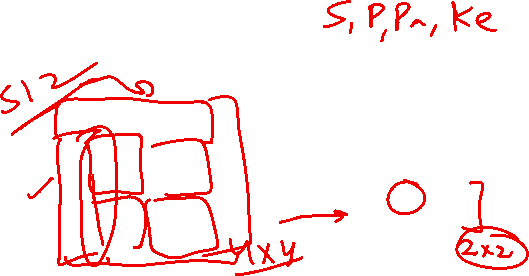 S, P, Pn, Ke
512
4x4
2x2